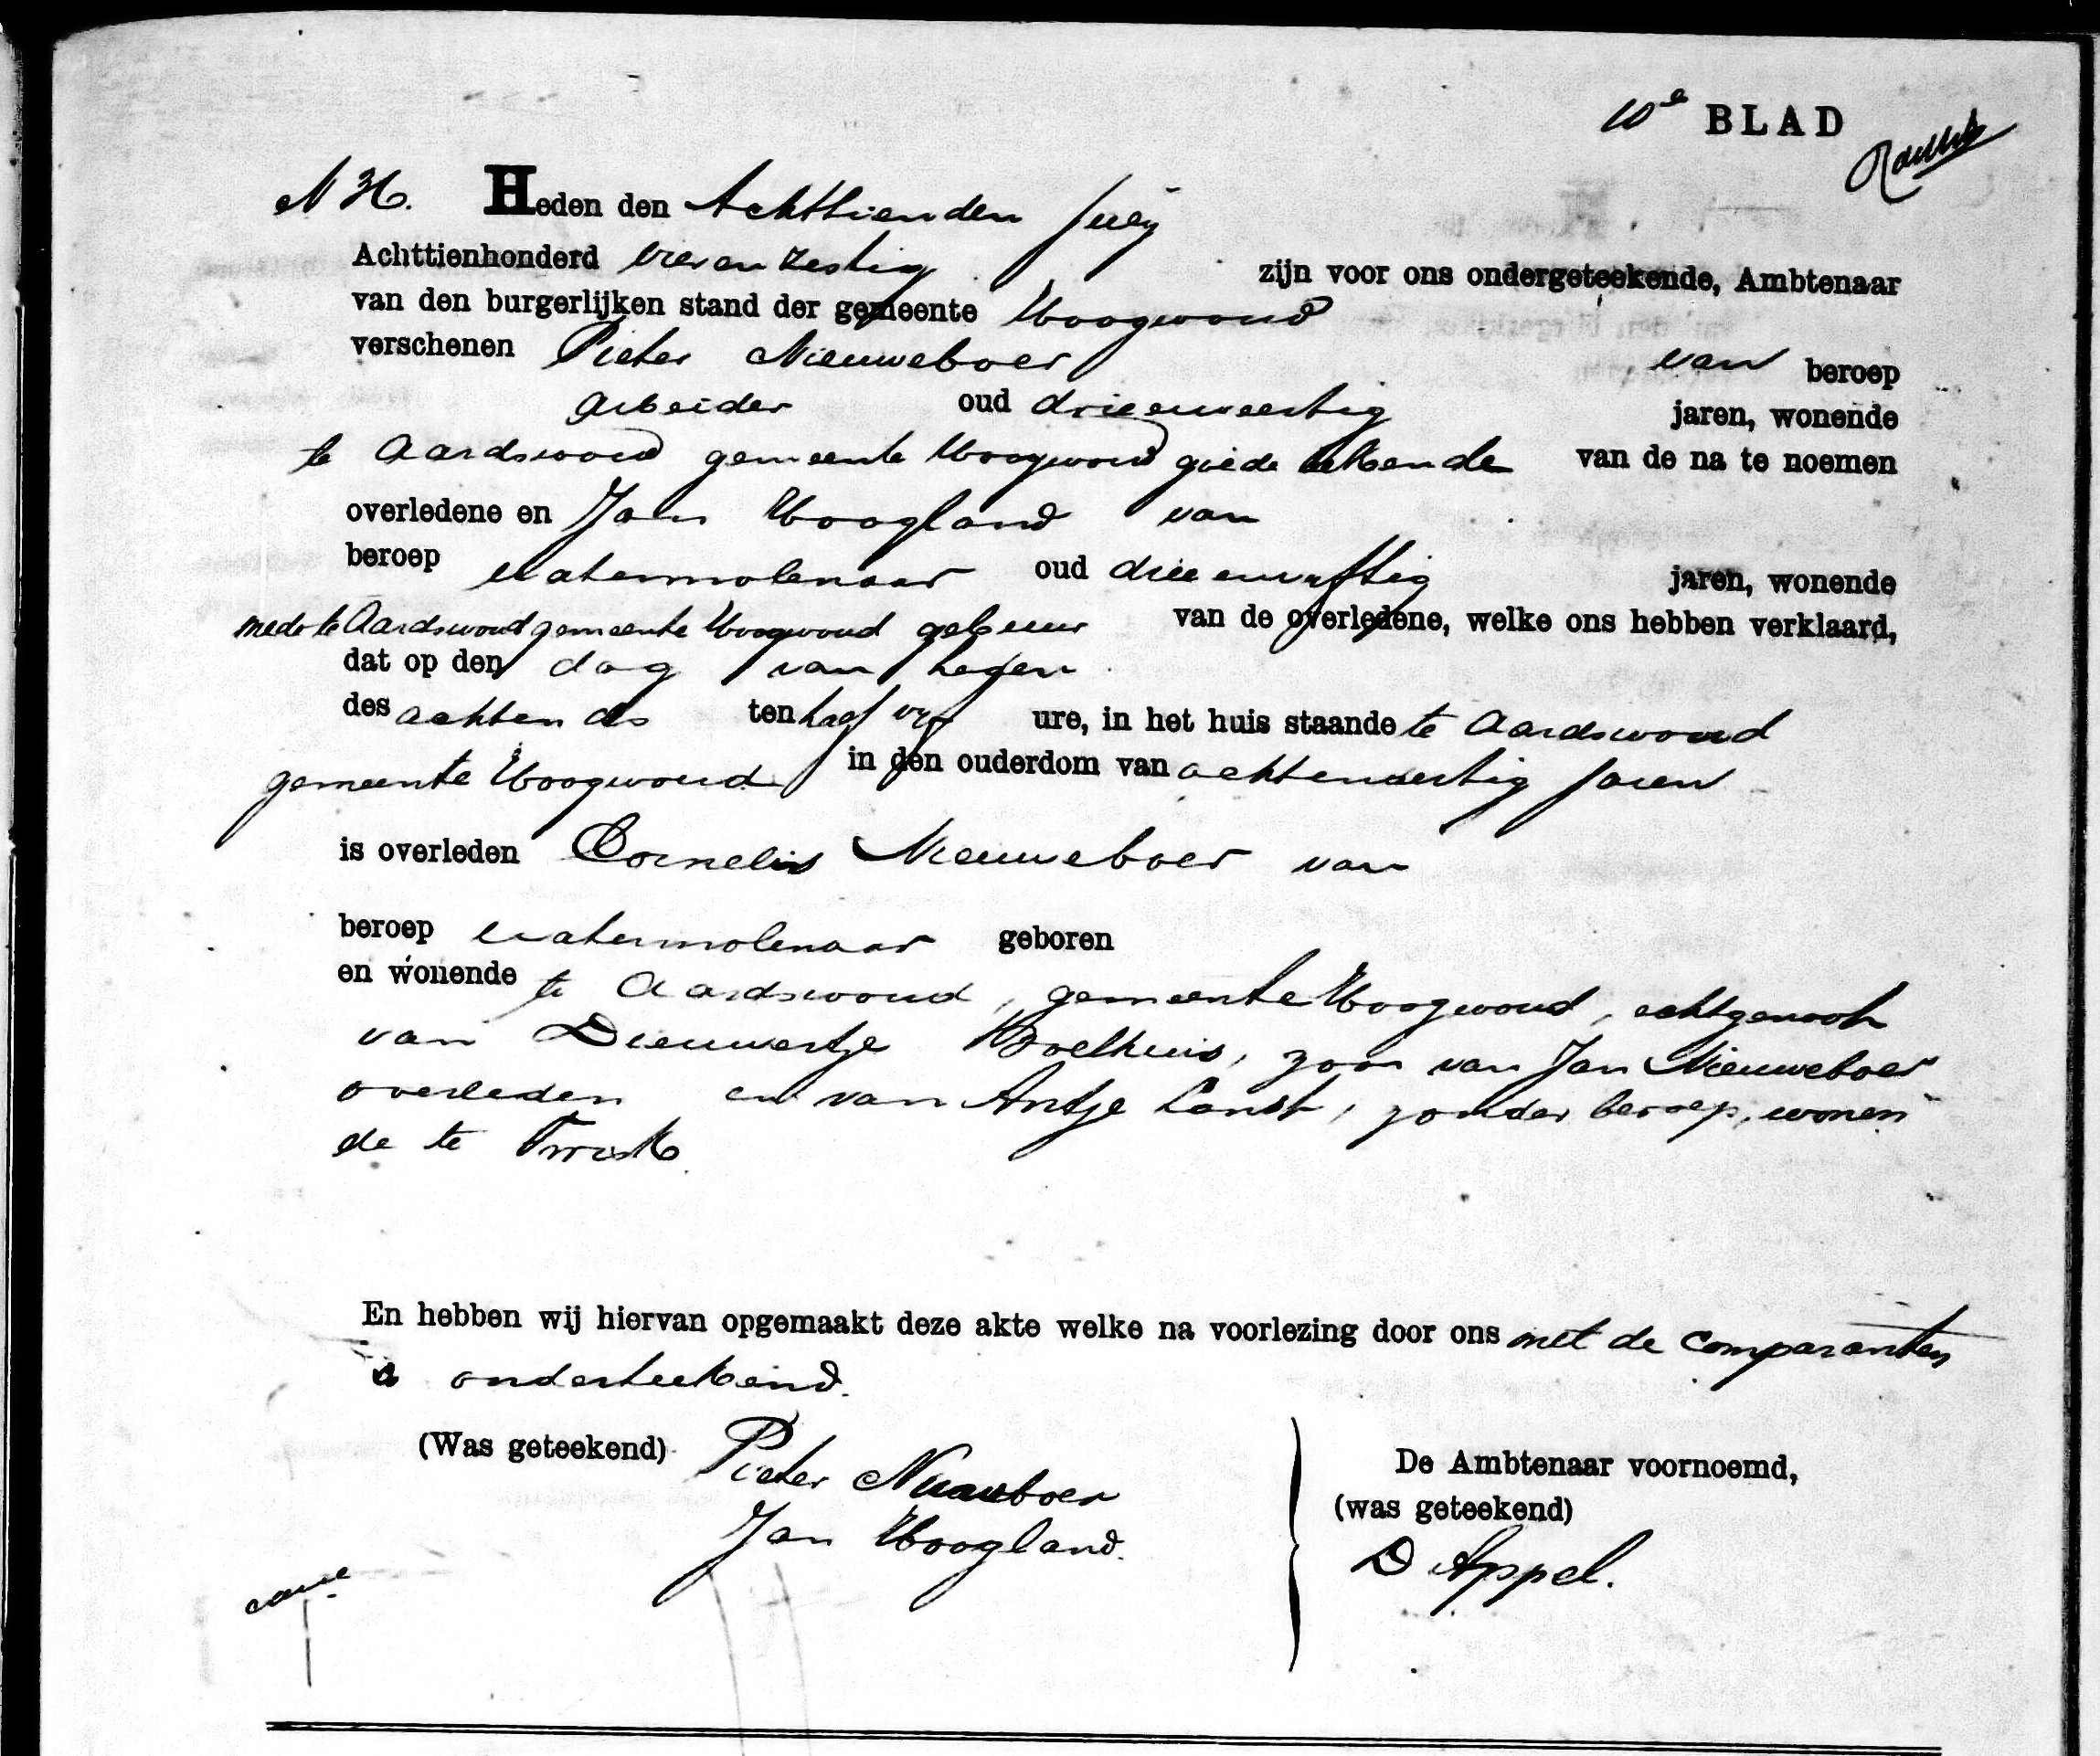 10e BLAD
N 36. Heden den Achttienden Julij
Achttienhonderd vierenzestig zijn voor ons ondergeteekende, Ambtenaar
van den burgerlijken stand der gemeente Hoogwoud
verschenen Pieter Nieuweboer van beroep
arbeider oud drieenveertig jaren, wonende
te Aardswoud gemeente Hoogwoud goede bekende van de na te noemen
overledene en Jan Hoogland van
beroep watermolenaar oud drieenvijftig jaren, wonende
mede te Aardswoud gemeente Hoogwoud gebuur van de overledene, welke ons hebben verklaard,
dat op den dag van heden
des achtends ten half vijf ure, in het huis staande te Aardswoud
gemeente Hoogwoud in den ouderdom van achtenveertig jaren
is overleden Cornelis Nieuweboer van
beroep watermolenaar geboren
en wonende te Aardswoud, gemeente Hoogwoud, echtgenoot
van Dieuwertje Koelhuis, zoon van Jan Nieuweboer
overleden en van Antje Lanst, zonder beroep, wonen
de te Twisk
En hebben wij hiervan opgemaakt deze akte welke na voorlezing door ons met de comparanten
is onderteekend.
(Was geteekend) Pieter Nieuwboer
Jan Hoogland.
De Ambtenaar voornoemd,
(was geteekend)
D Appel.